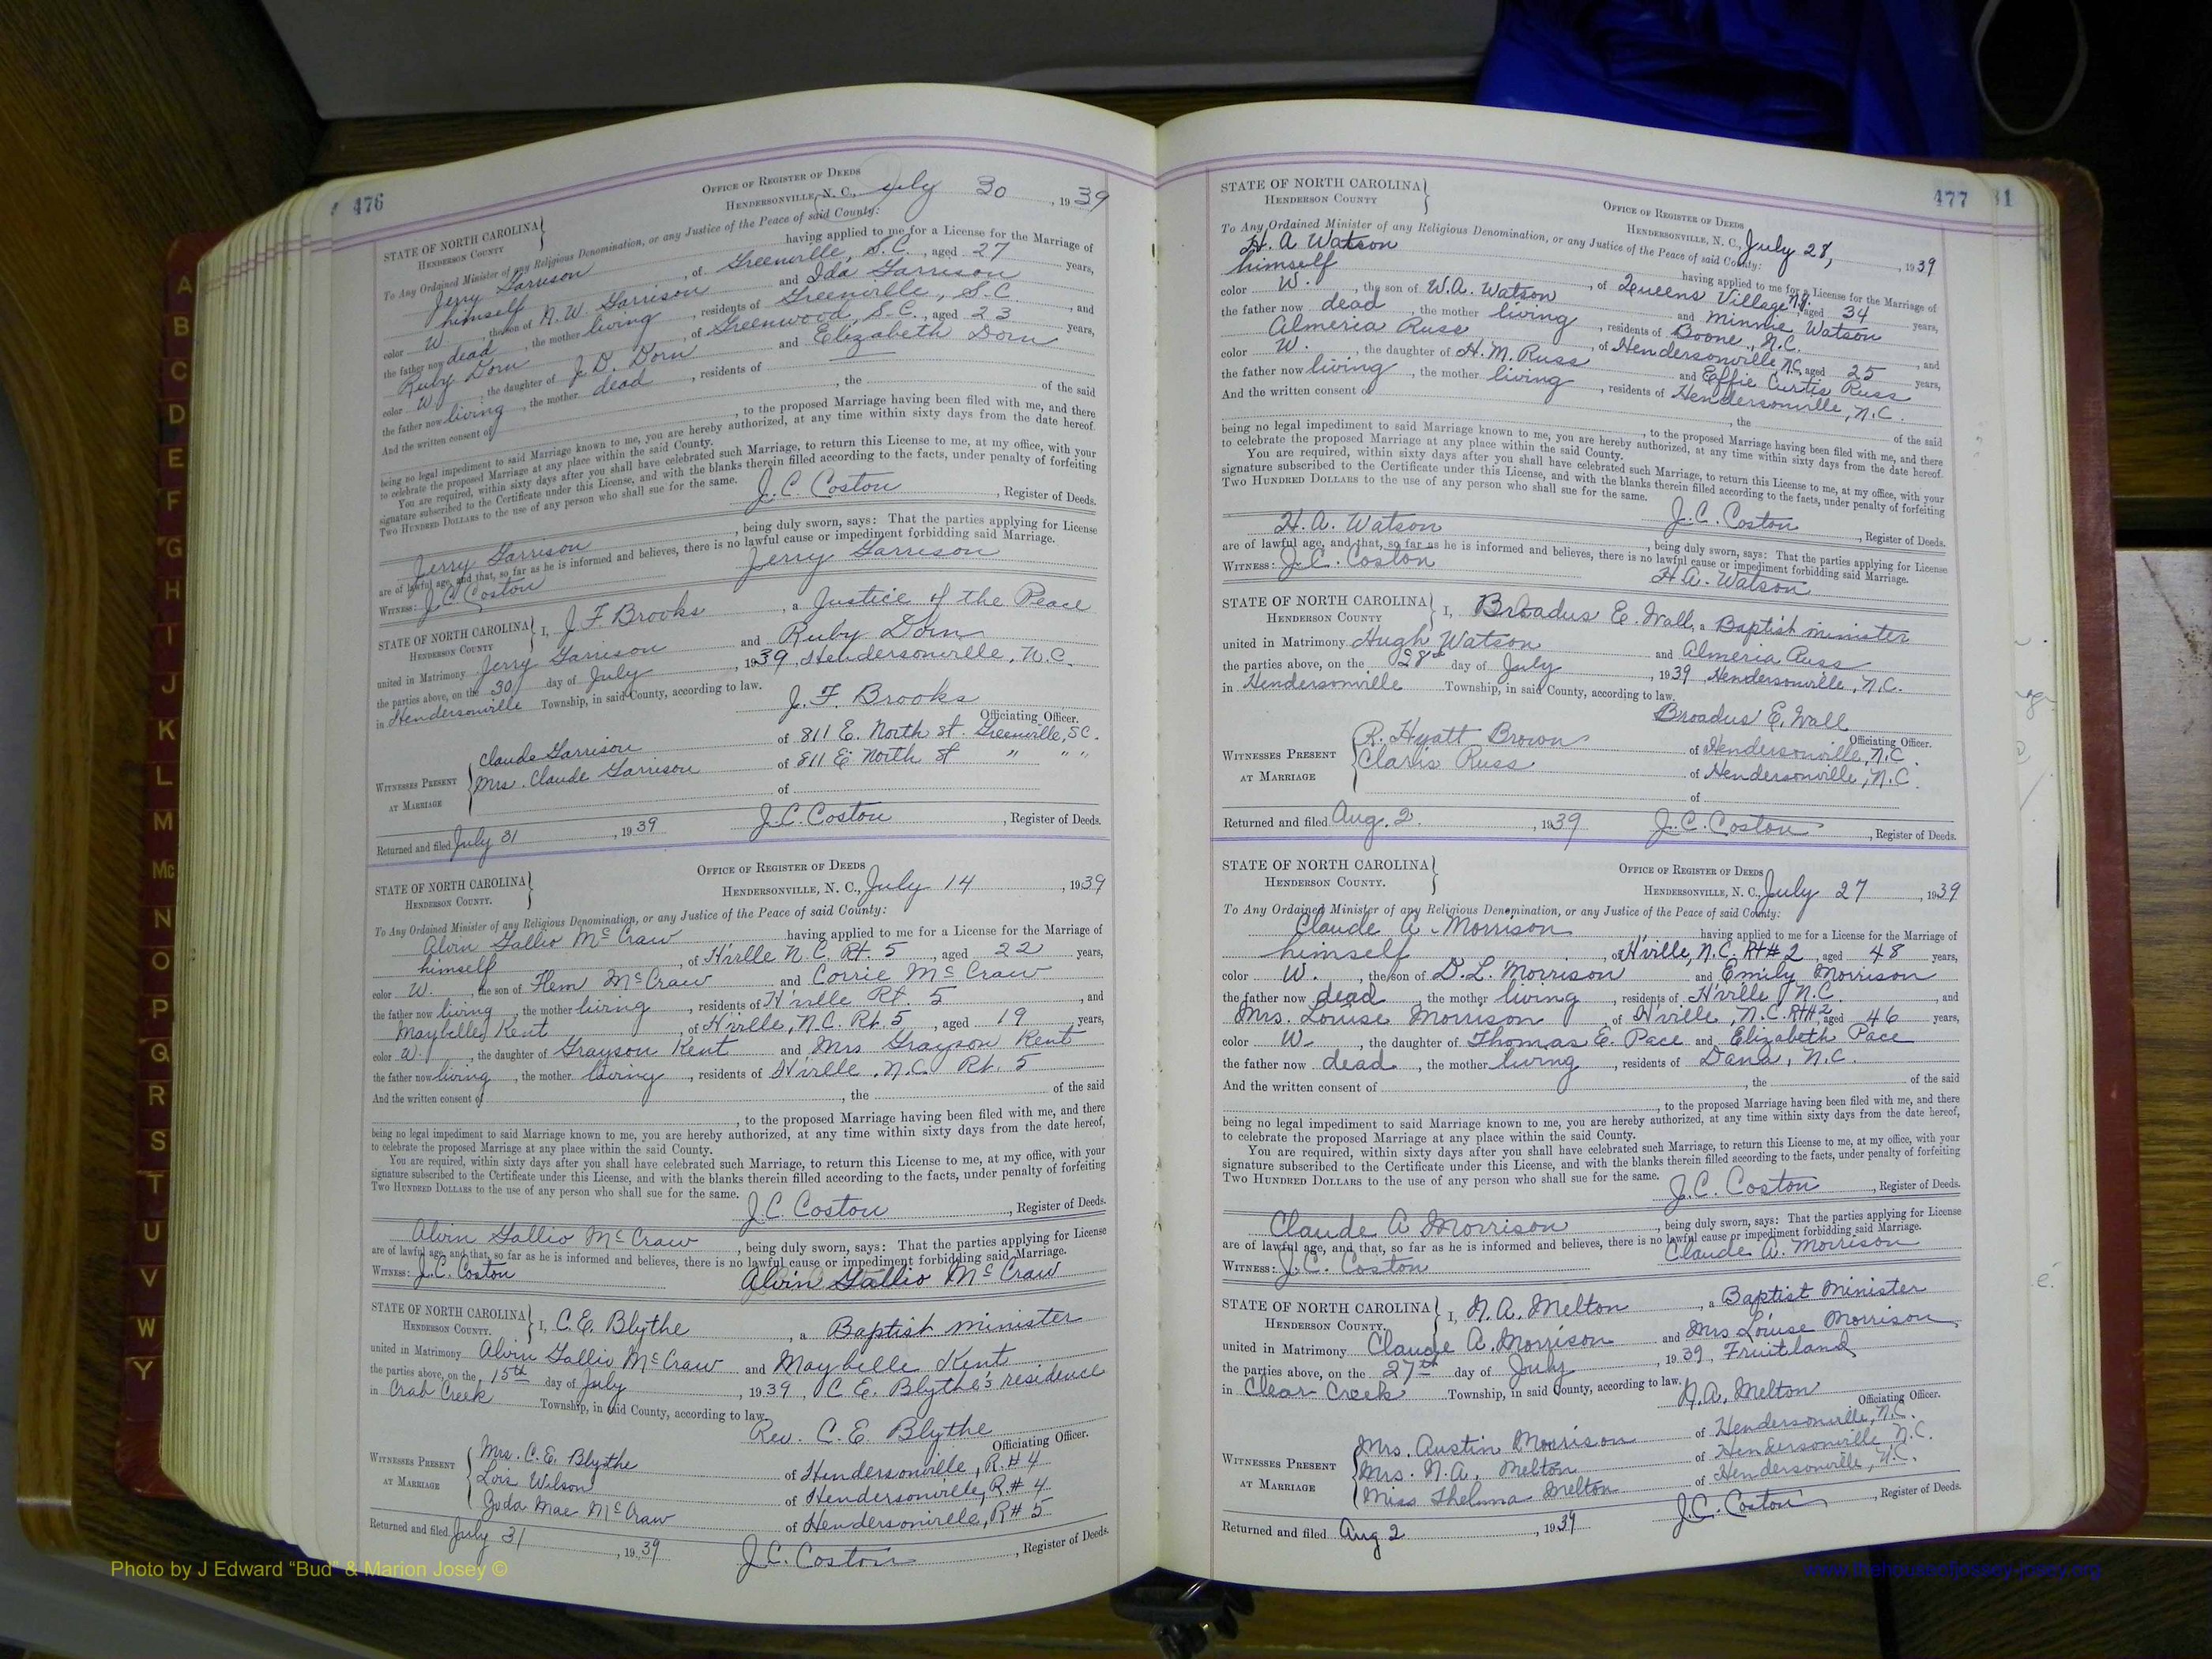 476
OFFICE OF REGISTER OF DEEDS
HENDERSONVILLE, N. C., July 30, 1939
STATE OF NORTH CAROLINA
HENDERSON COUNTY
To Any Ordained Minister of any Religious Denomination, or any Justice of the Peace of said County:
Jerry Garrison having applied to me for a License for the Marriage of
himself, of Greenville, S.C., aged 27 years,
color W, the son of A. W. Garrison and Ida Garrison
the father now dead, the mother living, residents of Greenville, S.C, and
Ruby Dorn of Greenwood, S.C., aged 23 years,
color W, the daughter of J. D. Dorn and Elizabeth Dorn
the father now living, the mother dead, residents of
And the written consent of , the of the said
, to the proposed Marriage having been filed with me, and there
being no legal impediment to said Marriage known to me, you are hereby authorized, at any time within sixty days from the date hereof,
to celebrate the proposed Marriage at any place within the said County.
You are required, within sixty days after you shall have celebrated such Marriage, to return this License to me, at my office, with your
signature subscribed to the Certificate under this License, and with the blanks therein filled according to the facts, under penalty of forfeiting
TWO HUNDRED DOLLARS to the use of any person who shall sue for the same.
J. C. Coston, Register of Deeds.
Jerry Garrison, being duly sworn, says: That the parties applying for License
are of lawful age, and that, so far as he is informed and believes, there is no lawful cause or impediment forbidding said Marriage.
WITNESS: J. C. Coston Jerry Garrison
STATE OF NORTH CAROLINA
HENDERSON COUNTY
I, J. F. Brooks, a Justice of the Peace
united in Matrimony Jerry Garrison and Ruby Dorn
the parties above, on the 30 day of July, 1939, Hendersonville, N.C.
in Hendersonville Township, in said County, according to law.
J. F. Brooks
Officiating Officer.
WITNESSES PRESENT
AT MARRIAGE
Claude Garrison of 811 E. North st. Greenville, SC.
Mrs. Claude Garrison of 811 E. North st " " "
of
Returned and filed July 31, 1939 J. C. Coston, Register of Deeds.
OFFICE OF REGISTER OF DEEDS
HENDERSONVILLE, N. C., July 14, 1939
STATE OF NORTH CAROLINA
HENDERSON COUNTY.
To Any Ordained Minister of any Religious Denomination, or any Justice of the Peace of said County:
Alvin Gallio McCraw having applied to me for a License for the Marriage of
himself, of H'ville N.C. Rt. 5, aged 22 years,
color W., the son of Flem McCraw and Corrie McCraw
the father now living, the mother living, residents of H'ville Rt. 5, and
Maybelle Kent, of H'ville, N.C. Rt. 5, aged 19 years,
color W., the daughter of Grayson Kent and Mrs Grayson Kent
the father now living, the mother living, residents of H'ville, N.C. Rt. 5
And the written consent of , the of the said
, to the proposed Marriage having been filed with me, and there
being no legal impediment to said Marriage known to me, you are hereby authorized, at any time within sixty days from the date hereof,
to celebrate the proposed Marriage at any place within the said County.
You are required, within sixty days after you shall have celebrated such Marriage, to return this License to me, at my office, with your
signature subscribed to the Certificate under this License, and with the blanks therein filled according to the facts, under penalty of forfeiting
TWO HUNDRED DOLLARS to the use of any person who shall sue for the same.
J. C. Coston, Register of Deeds.
Alvin Gallio McCraw, being duly sworn, says: That the parties applying for License
are of lawful age, and that, so far as he is informed and believes, there is no lawful cause or impediment forbidding said Marriage.
WITNESS: J. C. Coston Alvin Gallio McCraw
STATE OF NORTH CAROLINA
HENDERSON COUNTY.
I, C. E. Blythe, a Baptist minister
united in Matrimony Alvin Gallio McCraw and Maybelle Kent
the parties above, on the 15th day of July, 1939, C. E. Blythe's residence
in Crab Creek Township, in said County, according to law.
Rev. C. E. Blythe
Officiating Officer.
WITNESSES PRESENT
AT MARRIAGE
Mrs. C. E. Blythe of Hendersonville, R.#4
Lois Wilson of Hendersonville, R.#4
Goda Mae McCraw of Hendersonville, R#5
Returned and filed July 31, 1939 J. C. Coston, Register of Deeds.
477
STATE OF NORTH CAROLINA
HENDERSON COUNTY
OFFICE OF REGISTER OF DEEDS
HENDERSONVILLE, N. C., July 28, 1939
To Any Ordained Minister of any Religious Denomination, or any Justice of the Peace of said County:
H. A Watson having applied to me for a License for the Marriage of
himself, of Queens Village N.Y. aged 34 years,
color W., the son of W. A. Watson and Minnie Watson
the father now dead, the mother living, residents of Boone, N.C., and
Almeria Russ, of Hendersonville N.C, aged 25 years,
color W., the daughter of H. M. Russ and Effie Curtis Russ
the father now living, the mother living, residents of Hendersonville, N.C.
And the written consent of , the of the said
, to the proposed Marriage having been filed with me, and there
being no legal impediment to said Marriage known to me, you are hereby authorized, at any time within sixty days from the date hereof.
to celebrate the proposed Marriage at any place within the said County.
You are required, within sixty days after you shall have celebrated such Marriage, to return this License to me, at my office, with your
signature subscribed to the Certificate under this License, and with the blanks therein filled according to the facts, under penalty of forfeiting
TWO HUNDRED DOLLARS to the use of any person who shall sue for the same.
J. C. Coston, Register of Deeds.
H. A. Watson, being duly sworn, says: That the parties applying for License
are of lawful age, and that, so far as he is informed and believes, there is no lawful cause or impediment forbidding said Marriage.
WITNESS: J. C. Coston H. A. Watson
STATE OF NORTH CAROLINA
HENDERSON COUNTY
I, Broadus E. Wall, a Baptist minister
united in Matrimony Hugh Watson and Almeria Russ
the parties above, on the 28th day of July, 1939, Hendersonville, N.C.
in Hendersonville Township, in said County, according to law.
Broadus E. Wall
Officiating Officer.
WITNESSES PRESENT
AT MARRIAGE
R. Hyatt Brown of Hendersonville, N.C.
Claris Russ of Hendersonville, N.C.
of
Returned and filed Aug. 2., 1939 J. C. Coston, Register of Deeds.
STATE OF NORTH CAROLINA
HENDERSON COUNTY.
OFFICE OF REGISTER OF DEEDS
HENDERSONVILLE, N. C., July 27, 1939
To Any Ordained Minister of any Religious Denomination, or any Justice of the Peace of said County:
Claude A. Morrison having applied to me for a License for the Marriage of
himself, of H'ville, N.C. Rt#2, aged 48 years,
color W., the son of D. L. Morrison and Emily Morrison
the father now dead, the mother living, residents of H'ville, N.C., and
Mrs. Louise Morrison of H'ville, N.C. Rt#2, aged 46 years,
color W., the daughter of Thomas E. Pace and Elizabeth Pace
the father now dead, the mother living, residents of Dana, N.C.
And the written consent of , the of the said
, to the proposed Marriage having been filed with me, and there
being no legal impediment to said Marriage known to me, you are hereby authorized, at any time within sixty days from the date hereof,
to celebrate the proposed Marriage at any place within the said County.
You are required, within sixty days after you shall have celebrated such Marriage, to return this License to me, at my office, with your
signature subscribed to the Certificate under this License, and with the blanks therein filled according to the facts, under penalty of forfeiting
TWO HUNDRED DOLLARS to the use of any person who shall sue for the same.
J. C. Coston, Register of Deeds.
Claude A Morrison, being duly sworn, says: That the parties applying for License
are of lawful age, and that, so far as he is informed and believes, there is no lawful cause or impediment forbidding said Marriage.
WITNESS: J. C. Coston Claude A. Morrison
STATE OF NORTH CAROLINA
HENDERSON COUNTY.
I, N. A. Melton, a Baptist Minister
united in Matrimony Claude A. Morrison and Mrs Louise Morrison,
the parties above, on the 27th day of July, 1939, Fruitland
in Clear Creek Township, in said County, according to law.
N. A. Melton
Officiating Officer.
WITNESSES PRESENT
AT MARRIAGE
Mrs. Austin Morrison of Hendersonville, N.C.
Mrs. N. A. Melton of Hendersonville N.C.
Miss Thelma Melton of Hendersonville, N.C.
Returned and filed Aug 2, 1939 J. C. Coston, Register of Deeds.
A
B
C
D
E
F
G
H
I
J
K
L
M
Mc
N
O
P
Q
R
S
T
U
V
W
Y
Photo by J Edward "Bud" & Marion Josey ©
www.thehouseofjossey-josey.org